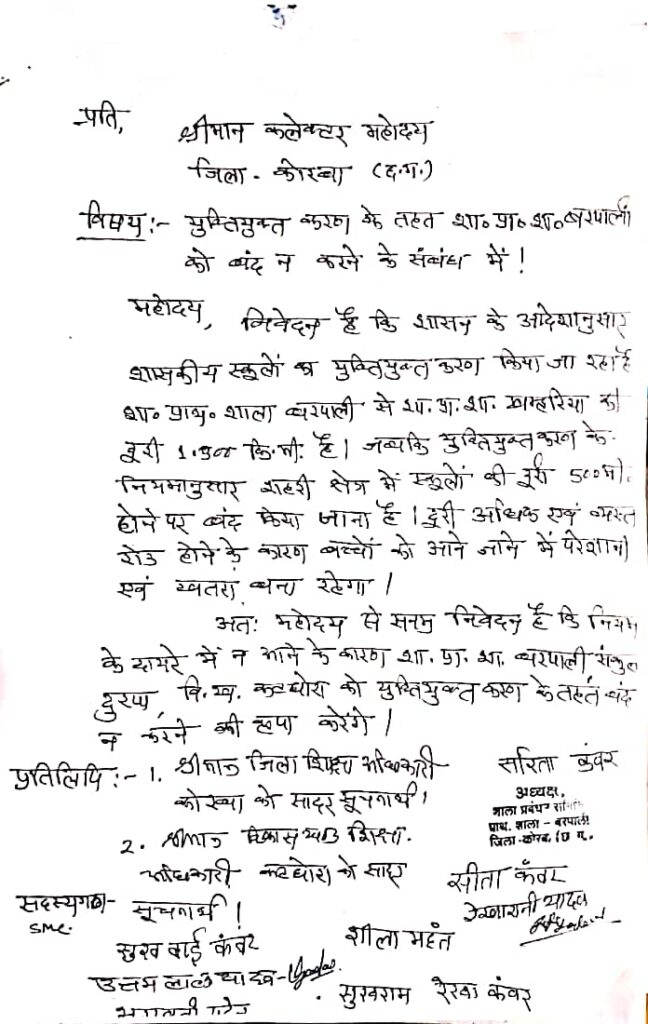 प्रति,
श्रीमान कलेक्टर महोदय
जिला - कोरबा (छ.ग.)
विषय :- युक्तियुक्त करण के तहत शा॰ प्रा॰ शा॰ बरपाली
को बंद न करने के संबंध में !
महोदय,
निवेदन है कि शासन के आदेशानुसार
शासकीय स्कूलों का युक्तियुक्त करण किया जा रहा है
शा॰ प्राथ॰ शाला बरपाली से शा. प्रा. शा. खम्हरिया की
दूरी कि.मी. है। जबकि युक्तियुक्त करण के
नियमानुसार शहरी क्षेत्र में स्कूलों की दूरी 500मी.
होने पर बंद किया जाना है। दूरी अधिक एवं व्यस्त
रोड होने के कारण बच्चों को आने जाने में परेशानी
एवं खतरा बना रहेगा।
अतः महोदय से सनम्र निवेदन है कि नियम
के दायरे में न आने के कारण शा. प्रा. शा. बरपाली संकुल
दुरपा, वि.ख. कटघोरा को युक्तियुक्त करण के तहत बंद
न करने की कृपा करेंगे।
प्रतिलिपि :- 1. श्रीमान जिला शिक्षा अधिकारी
कोरबा को सादर सूचनार्थ।
2. श्रीमान विकास खण्ड शिक्षा.
अधिकारी कटघोरा को सादर
सूचनार्थ।
सरिता कंवर
अध्यक्ष,
शाला प्रबंधन समिति
प्राथ. शाला - बरपाली
जिला-कोरबा (छ.ग.)
सदस्यगण-
SMC.
सीता कँवर
रेखारानी यादव
सुख बाई कंवर
शीला महंत
उत्तम लाल यादव - Yadav
सुखराम
रेखा कंवर